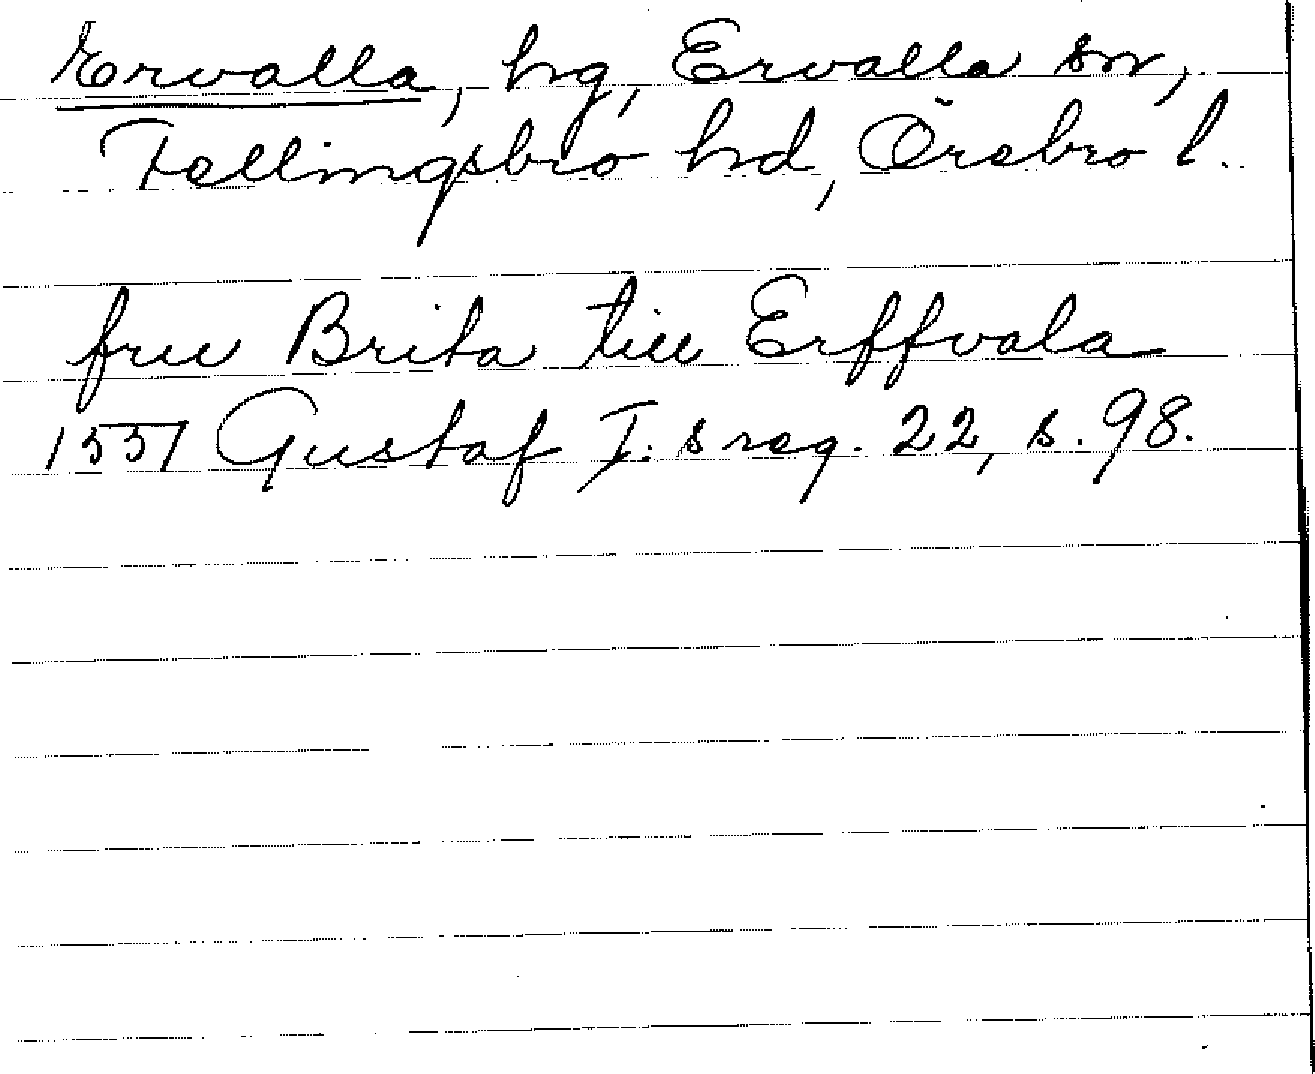 Ervalla, hg, Ervalla sn,
Fellingsbro hd, Örebro l.
fru Brita till Erffvala
1551 Gustaf I:s reg. 22, s. 98.